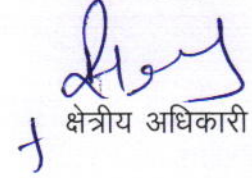 क्षेत्रीय अधिकारी